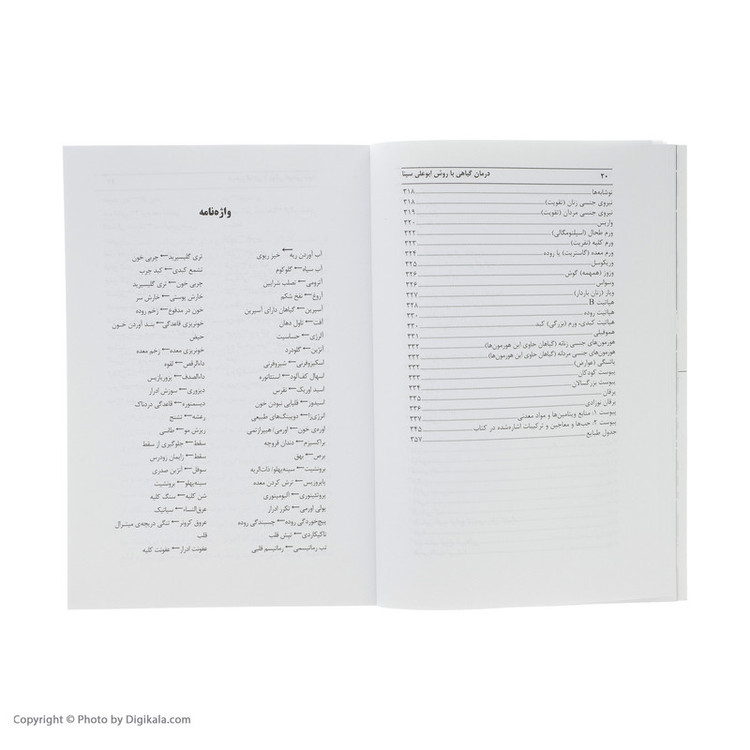 ۲۰ درمان گیاهی با روش ابوعلی سینا
نوشابه‌ها ۳۱۸
نیروی جنسی زنان (تقویت) ۳۱۸
نیروی جنسی مردان (تقویت) ۳۱۹
واریس ۳۲۰
ورم طحال (اسپلنومگالی) ۳۲۲
ورم کلیه (نفریت) ۳۲۳
ورم معده (گاستریت) یا روده ۳۲۴
وریکوسل ۳۲۵
وزوز (همهمه) گوش ۳۲۶
وسواس ۳۲۶
ویار (زنان باردار) ۳۲۷
هپاتیت B ۳۲۸
هپاتیت روده ۳۳۰
هپاتیت کبدی، ورم (بزرگی) کبد ۳۳۰
هموفیلی ۳۳۱
هورمون‌های جنسی زنانه (گیاهان حاوی این هورمون‌ها) ۳۳۲
هورمون‌های جنسی مردانه (گیاهان حاوی این هورمون‌ها) ۳۳۲
یائسگی (عوارض) ۳۳۲
یبوست کودکان ۳۳۴
یبوست بزرگسالان ۳۳۴
یرقان ۳۳۵
یرقان نوزادی ۳۳۶
پیوست ۱. منابع ویتامین‌ها و مواد معدنی ۳۳۷
پیوست ۲. حب‌ها و معاجین و ترکیبات اشاره‌شده در کتاب ۳۴۵
جدول طبایع ۳۵۷
واژه‌نامه
آب آوردن ریه ← خیز ریوی
آب سیاه ← گلوکوم
آترومی ← تصلب شرایین
آروغ ← نفخ شکم
آسپرین ← گیاهان دارای آسپرین
آفت ← تاول دهان
آلرژی ← حساسیت
آنژین ← گلودرد
اسکیزوفرنی ← شیزوفرنی
اسهال کف‌آلود ← استئاتوره
اسید اوریک ← نقرس
اسیدوز ← قلیایی نبودن خون
انرژی‌زا ← دوپینگ‌های طبیعی
اوره‌ی خون ← اورمی/ هیپرازتمی
براکسیزم ← دندان قروچه
برص ← بهق
برونشیت ← سینه‌پهلو/ ذات‌الریه
پایروزیس ← ترش کردن معده
پروتئینوری ← آلبومینوری
پولی اورمی ← تکرر ادرار
پیچ‌خوردگی روده ← چسبندگی روده
تاکیکاردی ← تپش قلب
تب رماتیسمی ← رماتیسم قلبی
تری گلیسیرید ← چربی خون
تشمع کبدی ← کبد چرب
چربی خون ← تری گلیسیرید
خارش پوستی ← خارش سر
خون در مدفوع ← زخم روده
خونریزی قاعدگی ← بند آوردن خون
حیض
خونریزی معده ← زخم معده
داءالرقص ← لقوه
داءالصدف ← پزوریازیس
دیزوری ← سوزش ادرار
دیسمنوره ← قاعدگی دردناک
رعشه ← تشنج
ریزش مو ← طاسی
سقط ← جلوگیری از سقط
سقط ← زایمان زودرس
سوفل ← آنژین صدری
سینه‌پهلو ← برونشیت
شن کلیه ← سنگ کلیه
عرق‌النساء ← سیاتیک
عروق کرونر ← تنگی دریچه‌ی میترال
قلب
عفونت ادرار ← عفونت کلیه
Copyright © Photo by Digikala.com